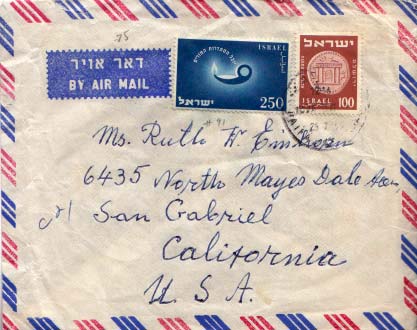 75
דאר אויר
BY AIR MAIL
ISRAEL
ישראל
250
ישראל
ISRAEL 100
#91
Ms. Ruth H.
6435 North Mayes Dale
San Gabriel
California
U. S. A.